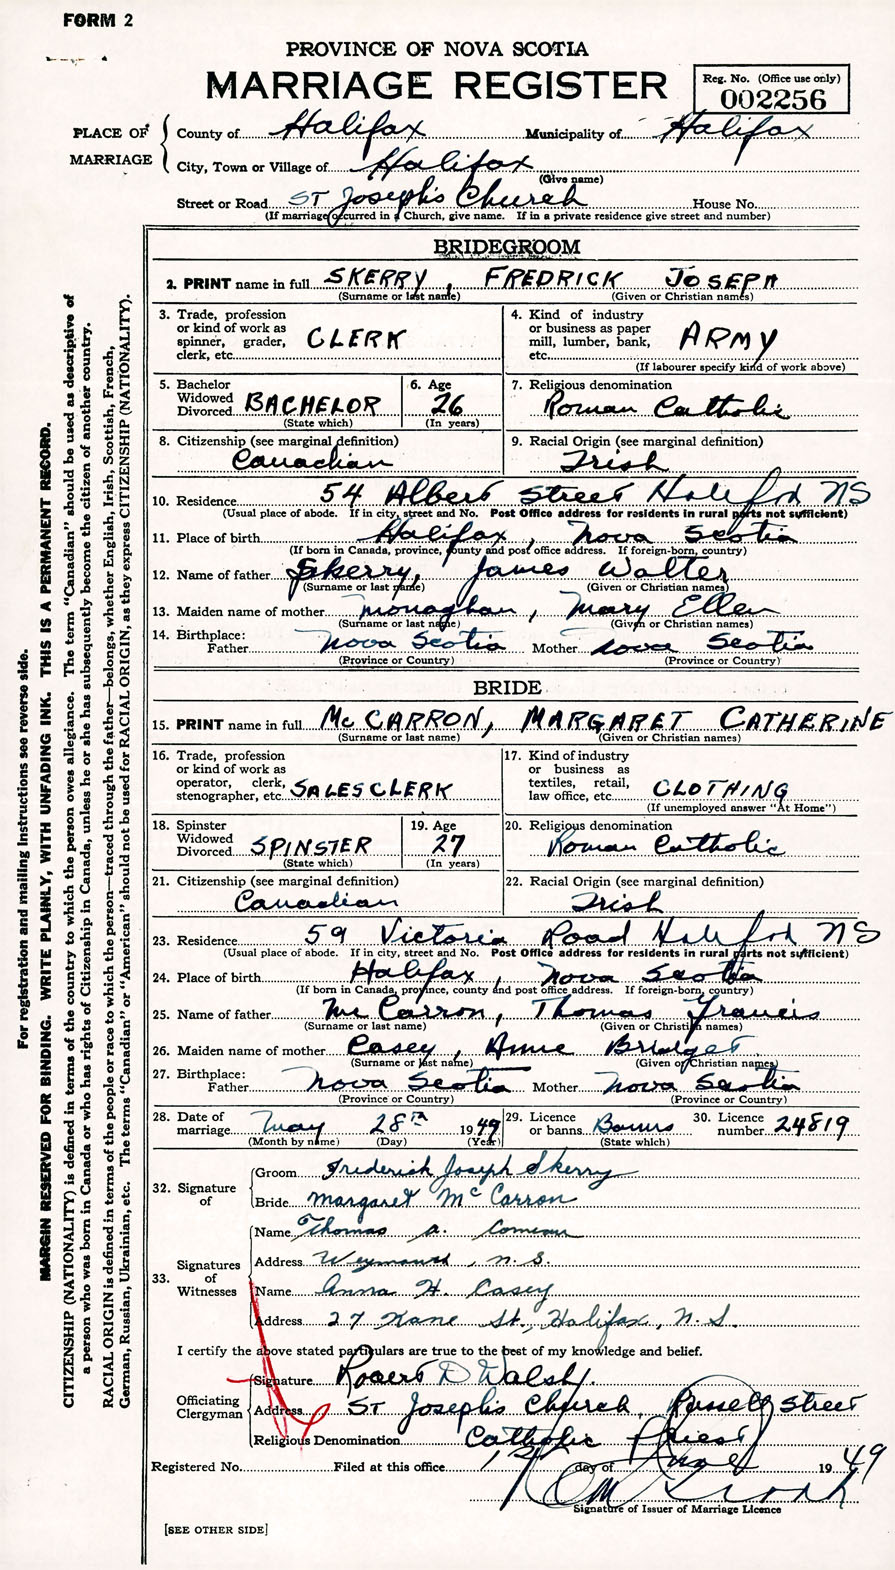 FORM 2
PROVINCE OF NOVA SCOTIA
MARRIAGE REGISTER
Reg. No. (Office use only)
002256
PLACE OF MARRIAGE
County of Halifax Municipality of Halifax
City, Town or Village of Halifax
(Give name)
Street or Road ST Joseph's Church House No.
(If marriage occurred in a Church, give name. If in a private residence give street and number)
BRIDEGROOM
2. PRINT name in full SKERRY, FREDRICK JOSEPH
(Surname or last name) (Given or Christian names)
3. Trade, profession or kind of work as spinner, grader, clerk, etc. CLERK
4. Kind of industry or business as paper mill, lumber, bank, etc. ARMY
(If labourer specify kind of work above)
5. Bachelor Widowed Divorced BACHELOR
(State which)
6. Age 26
(In years)
7. Religious denomination Roman Catholic
8. Citizenship (see marginal definition) Canadian
9. Racial Origin (see marginal definition) Irish
10. Residence 54 Albert Street Halifax NS
(Usual place of abode. If in city, street and No. Post Office address for residents in rural parts not sufficient)
11. Place of birth Halifax, Nova Scotia
(If born in Canada, province, county and post office address. If foreign-born, country)
12. Name of father Skerry, James Walter
(Surname or last name) (Given or Christian names)
13. Maiden name of mother Monaghan, Mary Ellen
(Surname or last name) (Given or Christian names)
14. Birthplace:
Father Nova Scotia Mother Nova Scotia
(Province or Country) (Province or Country)
BRIDE
15. PRINT name in full McCARRON, MARGARET CATHERINE
(Surname or last name) (Given or Christian names)
16. Trade, profession or kind of work as operator, clerk, stenographer, etc. SALES CLERK
17. Kind of industry or business as textiles, retail, law office, etc. CLOTHING
(If unemployed answer "At Home")
18. Spinster Widowed Divorced SPINSTER
(State which)
19. Age 27
(In years)
20. Religious denomination Roman Catholic
21. Citizenship (see marginal definition) Canadian
22. Racial Origin (see marginal definition) Irish
23. Residence 59 Victoria Road Halifax NS
(Usual place of abode. If in city, street and No. Post Office address for residents in rural parts not sufficient)
24. Place of birth Halifax, Nova Scotia
(If born in Canada, province, county and post office address. If foreign-born, country)
25. Name of father McCarron, Thomas Francis
(Surname or last name) (Given or Christian names)
26. Maiden name of mother Casey, Anne Bridget
(Surname or last name) (Given or Christian names)
27. Birthplace:
Father Nova Scotia Mother Nova Scotia
(Province or Country) (Province or Country)
28. Date of marriage May 28th 1949
(Month by name) (Day) (Year)
29. Licence or banns Banns
(State which)
30. Licence number 24819
32. Signature of
Groom Frederick Joseph Skerry
Bride Margaret McCarron
33. Signatures of Witnesses
Name Thomas A. Comeau
Address Weymouth, N.S.
Name Anna H. Casey
Address 27 Kane St., Halifax, N.S.
I certify the above stated particulars are true to the best of my knowledge and belief.
Officiating Clergyman
Signature Robert D Walsh.
Address ST Joseph's Church, Russell Street
Religious Denomination Catholic Priest
Registered No. Filed at this office day of 1949
Signature of Issuer of Marriage Licence
[SEE OTHER SIDE]
For registration and mailing instructions see reverse side.
MARGIN RESERVED FOR BINDING. WRITE PLAINLY, WITH UNFADING INK. THIS IS A PERMANENT RECORD.
CITIZENSHIP (NATIONALITY) is defined in terms of the country to which the person owes allegiance. The term "Canadian" should be used as descriptive of
a person who was born in Canada or who has rights of Citizenship in Canada, unless he or she has subsequently become the citizen of another country.
RACIAL ORIGIN is defined in terms of the people or race to which the person—traced through the father—belongs, whether English, Irish, Scottish, French,
German, Russian, Ukrainian, etc. The terms "Canadian" or "American" should not be used for RACIAL ORIGIN, as they express CITIZENSHIP (NATIONALITY).